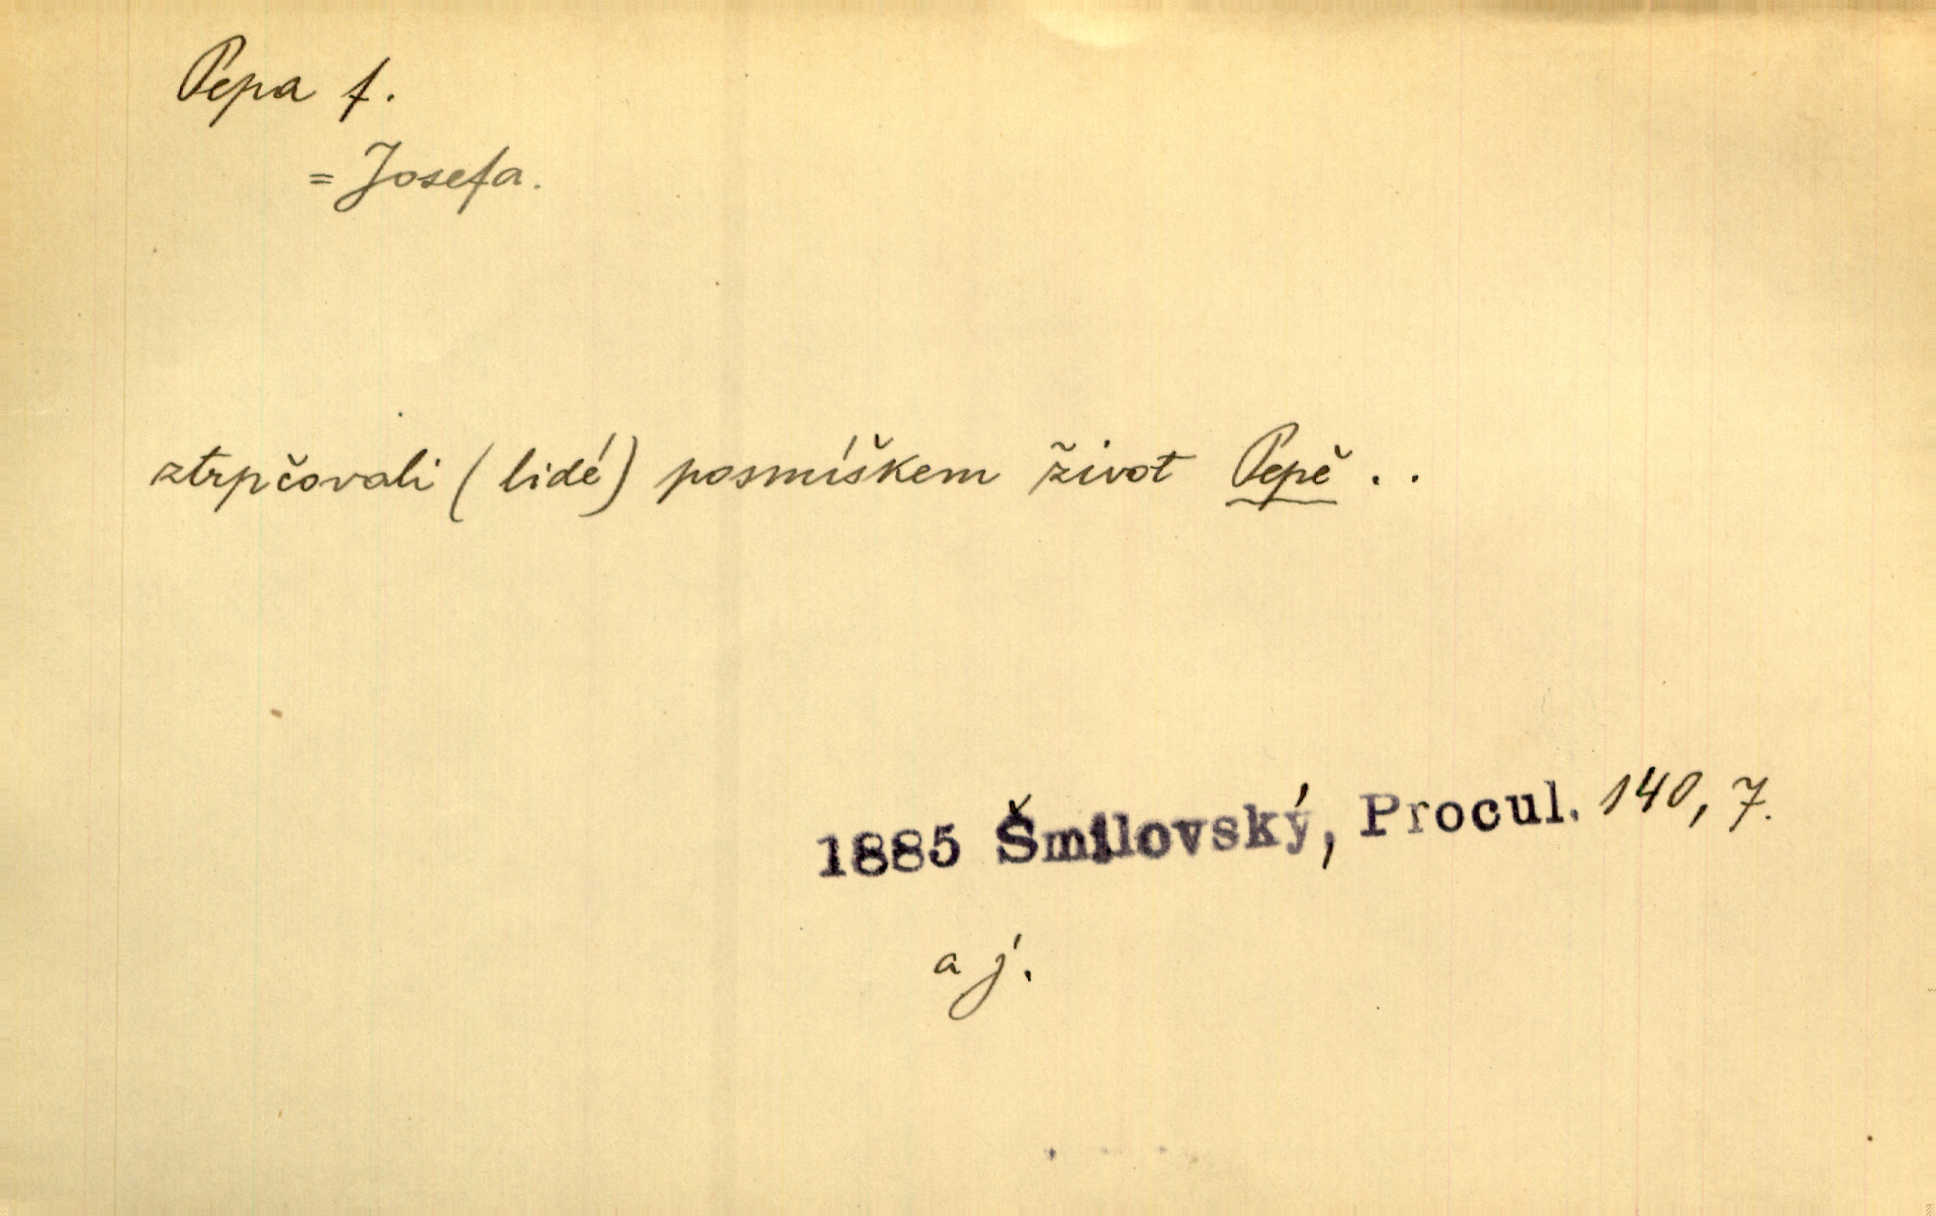 Pepa f.
= Josefa.
ztrpčovali (lidé) posmíškem život Pepě . .
1885 Šmilovský, Procul. 140, 7.
a j.